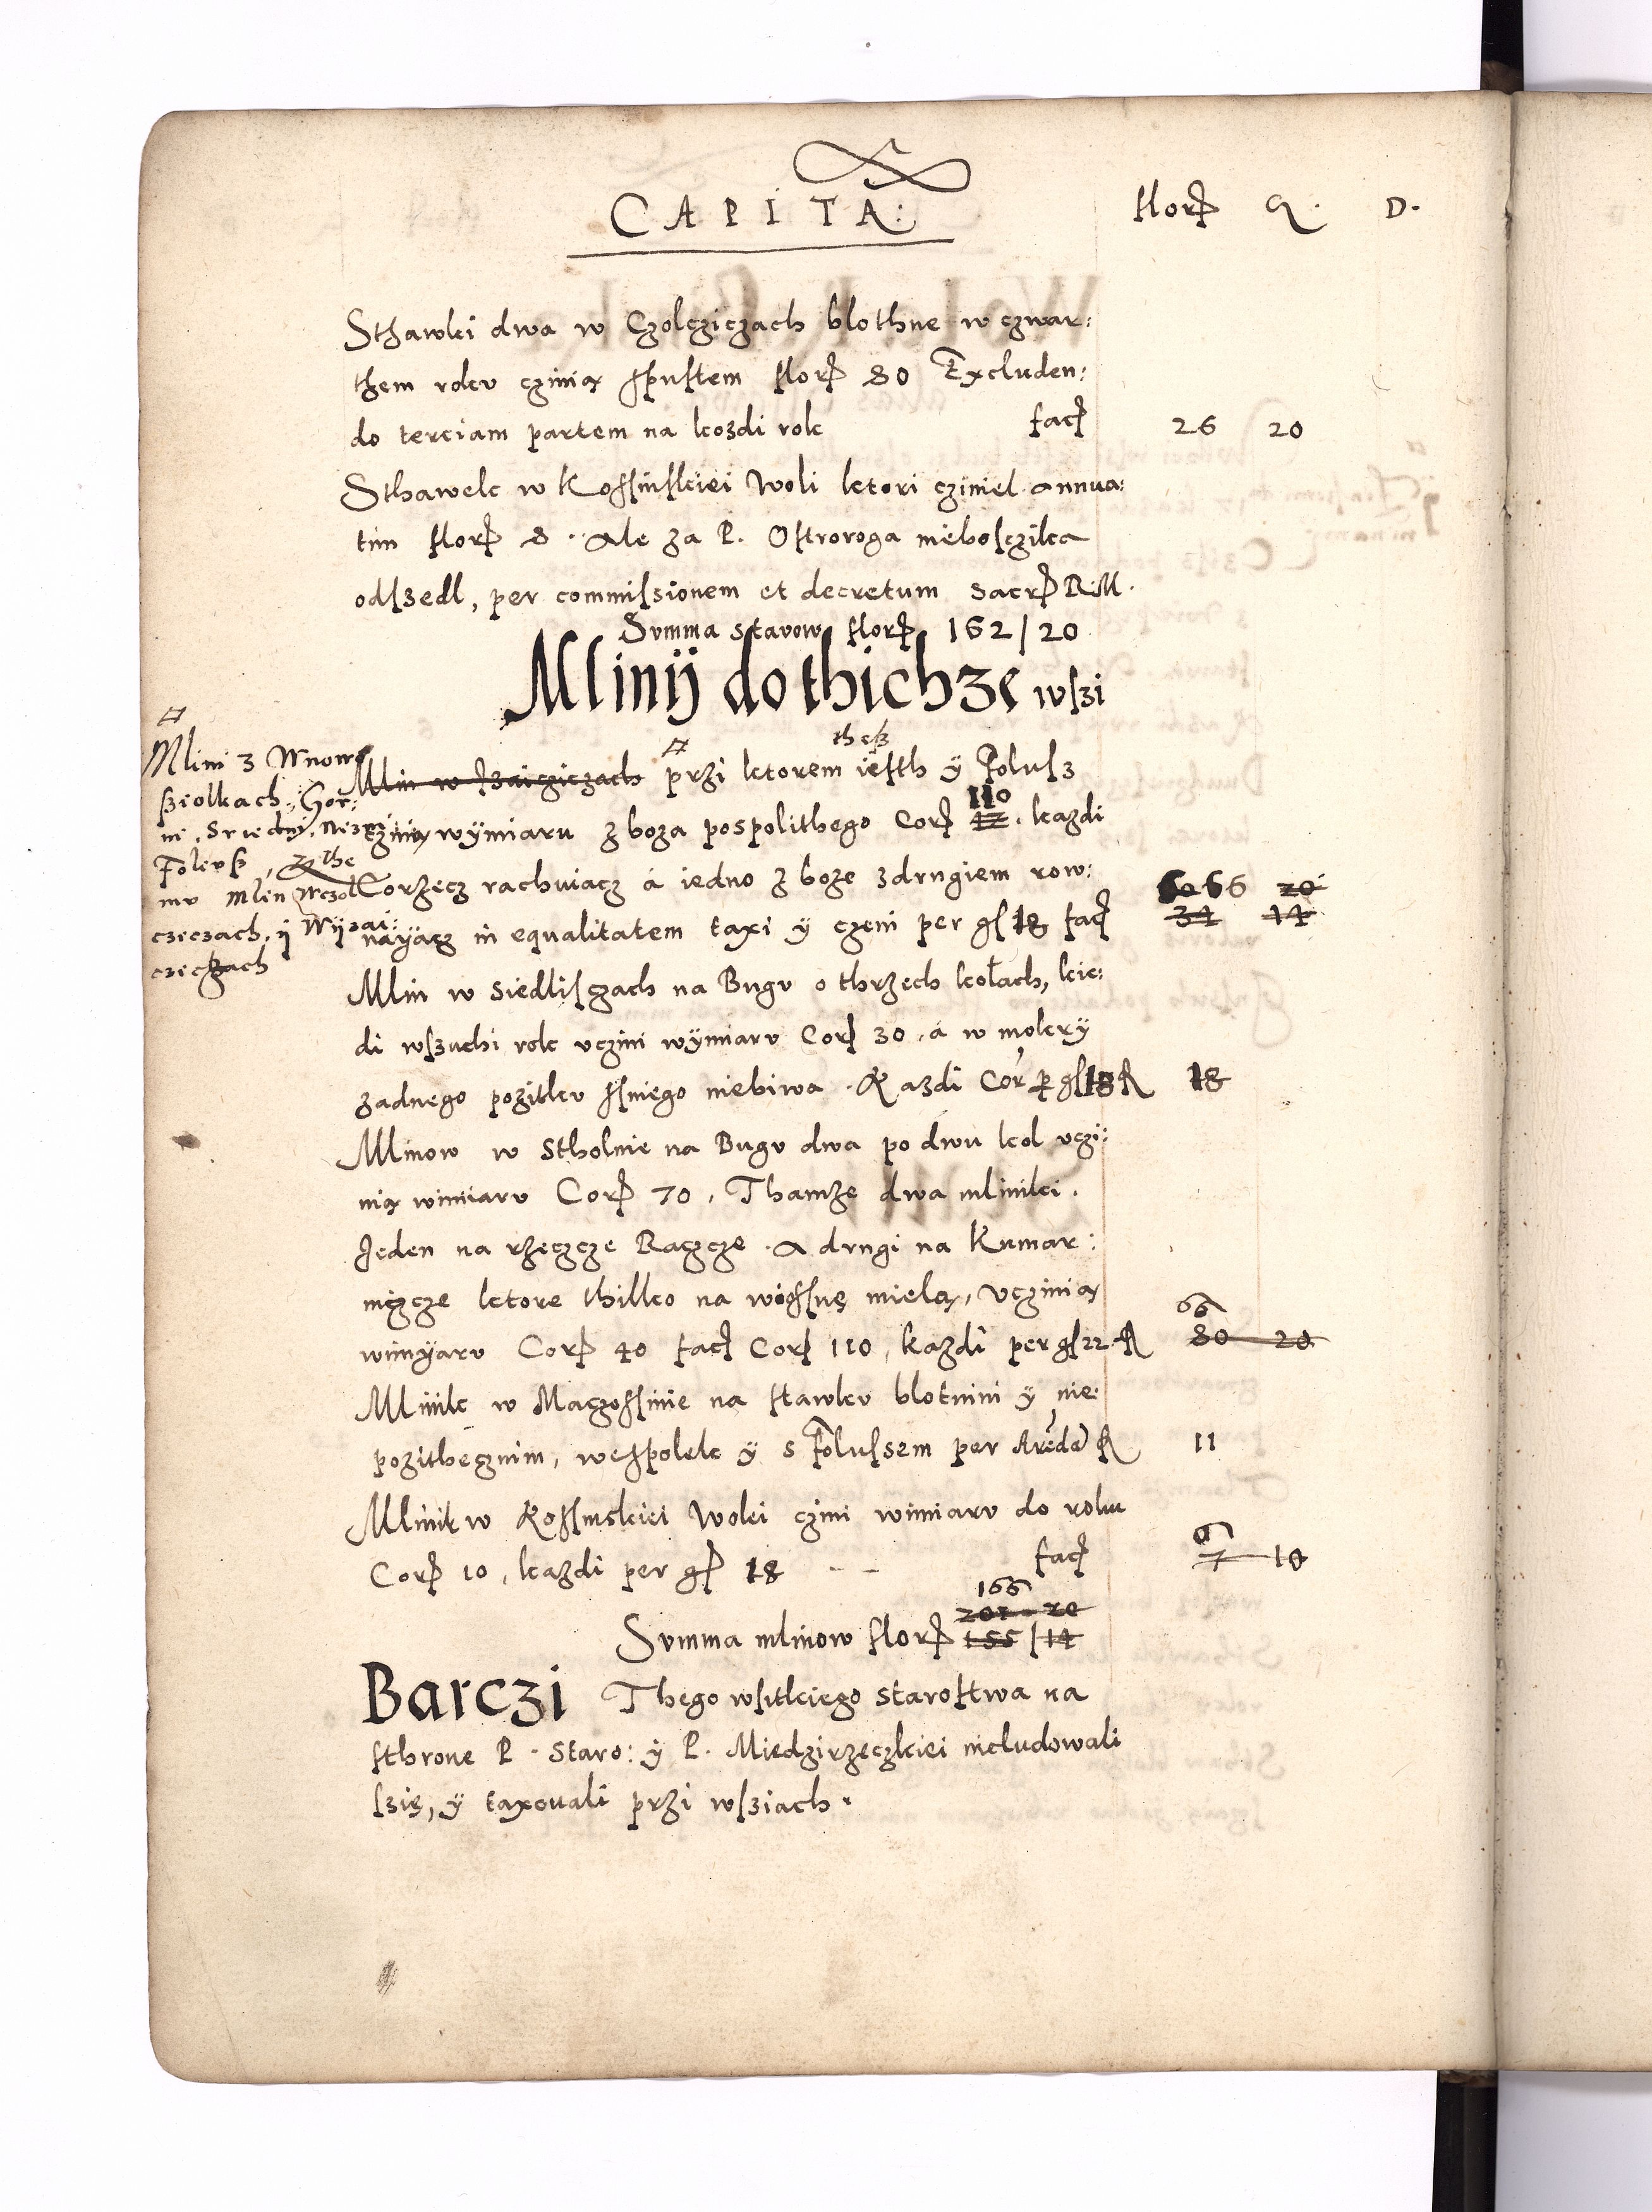 CAPITA:
flor G. D.
Sthawki dwa w Czolcziczach blothne w czwar:
them roku czinią sspustem flor 80 Excluden:
do terciam partem na kozdi rok fact 26 20
Sthawek w Kossinskiei Woli ktori cziniel annua:
tim flor 8. Ale za P. Ostroroga nieboszika
odszedl, per commissionem et decretum Sacr R.M.
Summa stavow flor 162/20
Mlinÿ do thichze wszi
Mlini z Wnow
sziolkach, Gor:
ni, Sriedni, Nizni
Folusz, the
mu mlen Wczol
cziczach, ÿ Wÿzai:
cziczach
thesz
Mlin w Uzaicziczach przi ktorem iesth ÿ Folusz
czinią wÿmiaru zboza pospolithego Cor 110 42. kazdi
Corzecz rachuiącz á iedno zboze z drugiem row:
naÿącz in equalitatem taxi ÿ czeni per gs 18 fact 60 66 20
34 14
Mlin w Siedlisczach na Bugu o thrzech kołach, kie:
di wszuchi rok uczini wÿmiaru Cor 30, á w mokrÿ
zadnego pozitku ssniego niebiwa. Kazdi Cor per gs 18 R 18
Mlinow w Stholnie na Bugu dwa po dwu kol uczi:
nią wimiaru Cor 70, Thamze dwa mliniki.
Jeden na rzeczcze Raczcze. A drugi na Kumar:
niczcze ktore thilko na wiossnę mielą, Uczinią
wimÿaru Cor 40 fact Cor 110, kazdi per gs 22 R 66
80 20
Mlinik w Maczossinie na stawku blotnim ÿ nie
pozithecznim, wespolek ÿ s Folussem per Arendā R 11
Mlinik w Kossinskiei Wolei czini wimiaru do roku
Cor 10, kazdi per gs 18 -- fact 6
7 10
166
201 - 20
Summa mlinow flor 155/14
Barczi Thego wsitkiego starostwa na
sthrone P. Staro: ÿ P. Miedzirzeczkiei includowali
szię, ÿ taxovali przi wsziach.